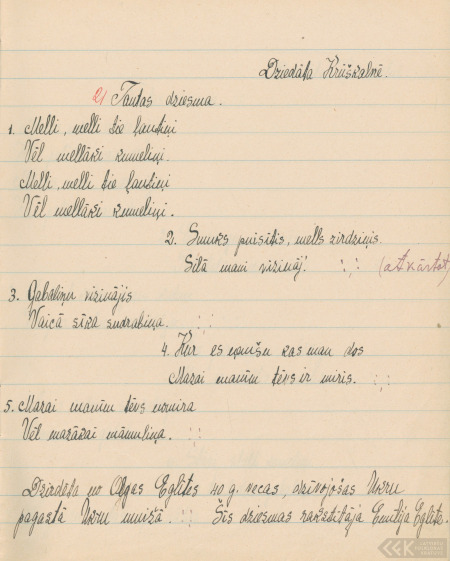 Dziedāta Krūškalnē.
21 Tautas dziesma.
1. Melli, melli tie ļautiņi
Vēl mellāki kumeliņi.
Melli, melli tie ļautiņi
Vēl mellāki kumeliņi.
2. Smuks puisītis, mells zirdziņis
Silā mani vizināj! :,: (atkārtot)
3. Gabaliņu vizinājis
Vaicā sīka sudrabiņa. :,:
4. Kur es ņemšu kas man dos
Mazai manīm tēvs ir miris. :,:
5. Mazai manīm tēvs nomira
Vēl mazākai māmuliņa. :,:
Dzirdēta no Olgas Eglītes 40 g. vecas, dzīvojošas Ukru
pagastā Ukru muižā. :,: Šīs dziesmas rakstītāja Emīlija Eglīte.